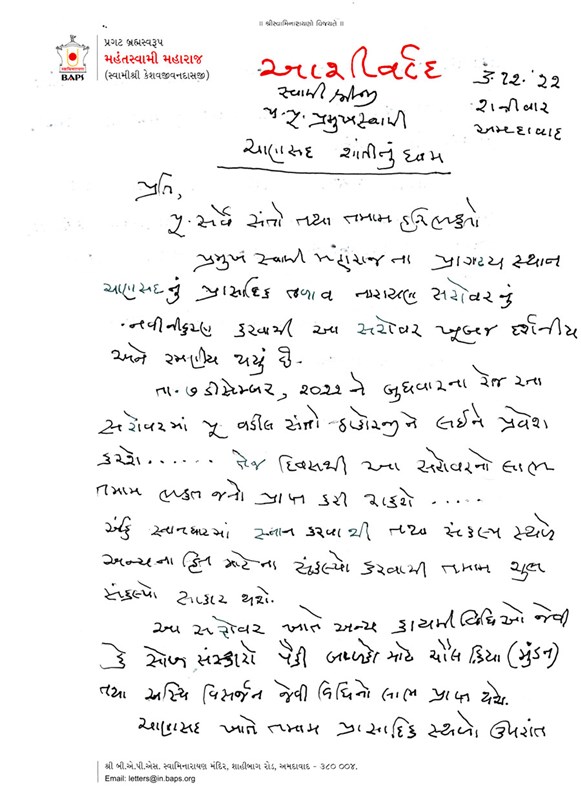 ॥ શ્રીસ્વામિનારાયણો વિજયતે ॥
પ્રગટ બ્રહ્મસ્વરૂપ
મહંતસ્વામી મહારાજ
(સ્વામીશ્રી કેશવજીવનદાસજી)
BAPS
આશીર્વાદ
૩.૧૨.'૨૨
શનીવાર
અમદાવાદ
સ્વામી શ્રીજી
પ.પૂ. પ્રમુખસ્વામી
ચાણસદ શાંતીનું ધામ
પ્રતિ,
પૂ. સર્વે સંતો તથા તમામ હરિભક્તો
પ્રમુખ સ્વામી મહારાજ ના પ્રાગટ્ય સ્થાન
ચાણસદનું પ્રાસાદિક તળાવ નારાયણ સરોવરનું
નવીનીકરણ કરવાથી આ સરોવર ખૂબજ દર્શનીય
અને રમણીય થયું છે.
તા. ૭ ડીસેમ્બર, ૨૦૨૨ ને બુધવારના રોજ
સરોવરમાં પૂ વડીલ સંતો ઠાકોરજીને લઈને પ્રવેશ
કરશે...... તેજ દિવસથી આ સરોવરનો લાભ
તમામ ભક્ત જનો પ્રાપ્ત કરી શકશે .....
સ્નાનઘાટમાં સ્નાન કરવાથી તથા સંકલ્પ સ્થળે
અન્યના હિત માટેના સંકલ્પો કરવાથી તમામ શુભ
સંકલ્પો સાકાર થશે.
આ સરોવર ખાતે અન્ય કાયમી વિધિઓ જેવી
કે સોળ સંસ્કારો પૈકી બાળકો માટે ચૌલ ક્રિયા (મુંડન)
તથા અસ્થિ વિસર્જન જેવી વિધિનો લાભ પ્રાપ્ત થશે.
ચાણસદ ખાતે તમામ પ્રાસાદિક સ્થળો ઉપરાંત
શ્રી બી.એ.પી.એસ. સ્વામિનારાયણ મંદિર, શાહીબાગ રોડ, અમદાવાદ - ૩૮૦ ૦૦૪.
Email: letters@in.baps.org